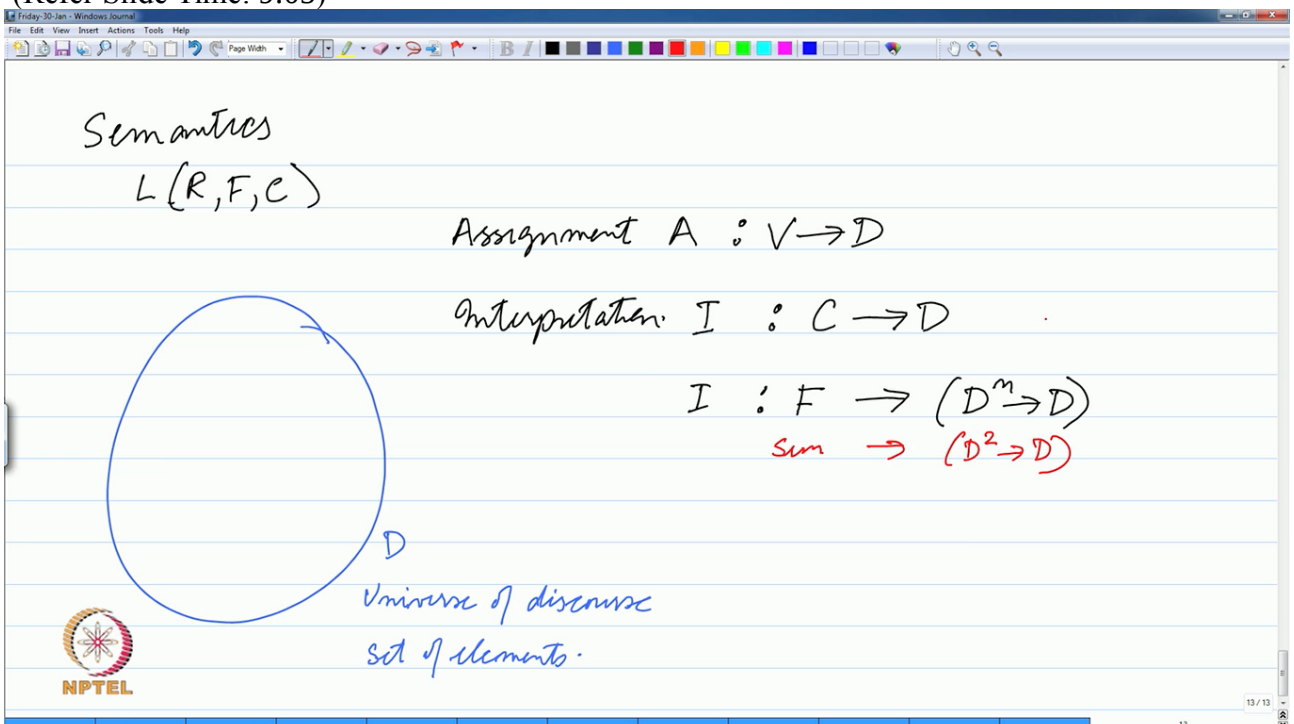 (Refer Slide Time: 3:03)
Friday-30-Jan - Windows Journal
File Edit View Insert Actions Tools Help
Page Width
B I
Semantics
L(R,F,C)
Assignment A : V→D
Interpretation. I : C→D
I : F → (Dⁿ→D)
sum → (D²→D)
D
Universe of discourse
set of elements.
NPTEL
13 / 13